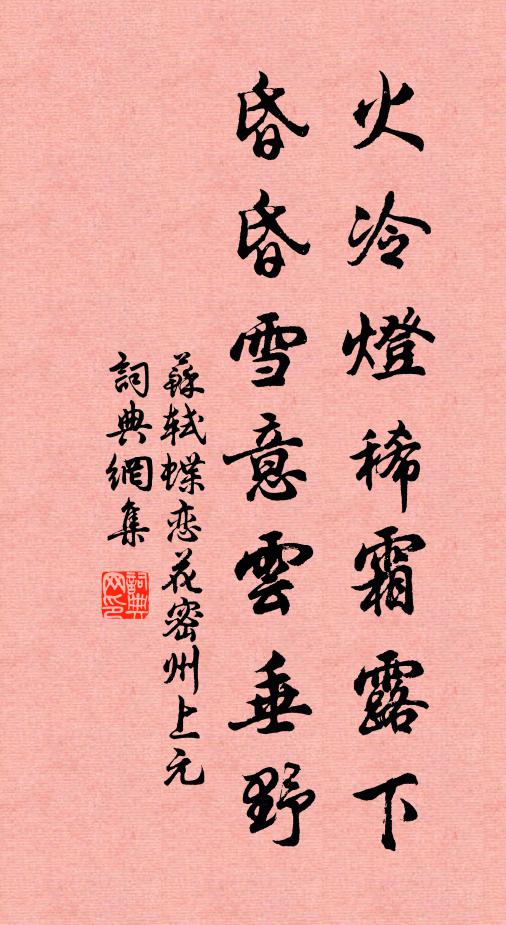 火冷燈稀霜露下
昏昏雪意雲垂野
蘇軾蝶恋花密州上元
詞典網集
詞典网印